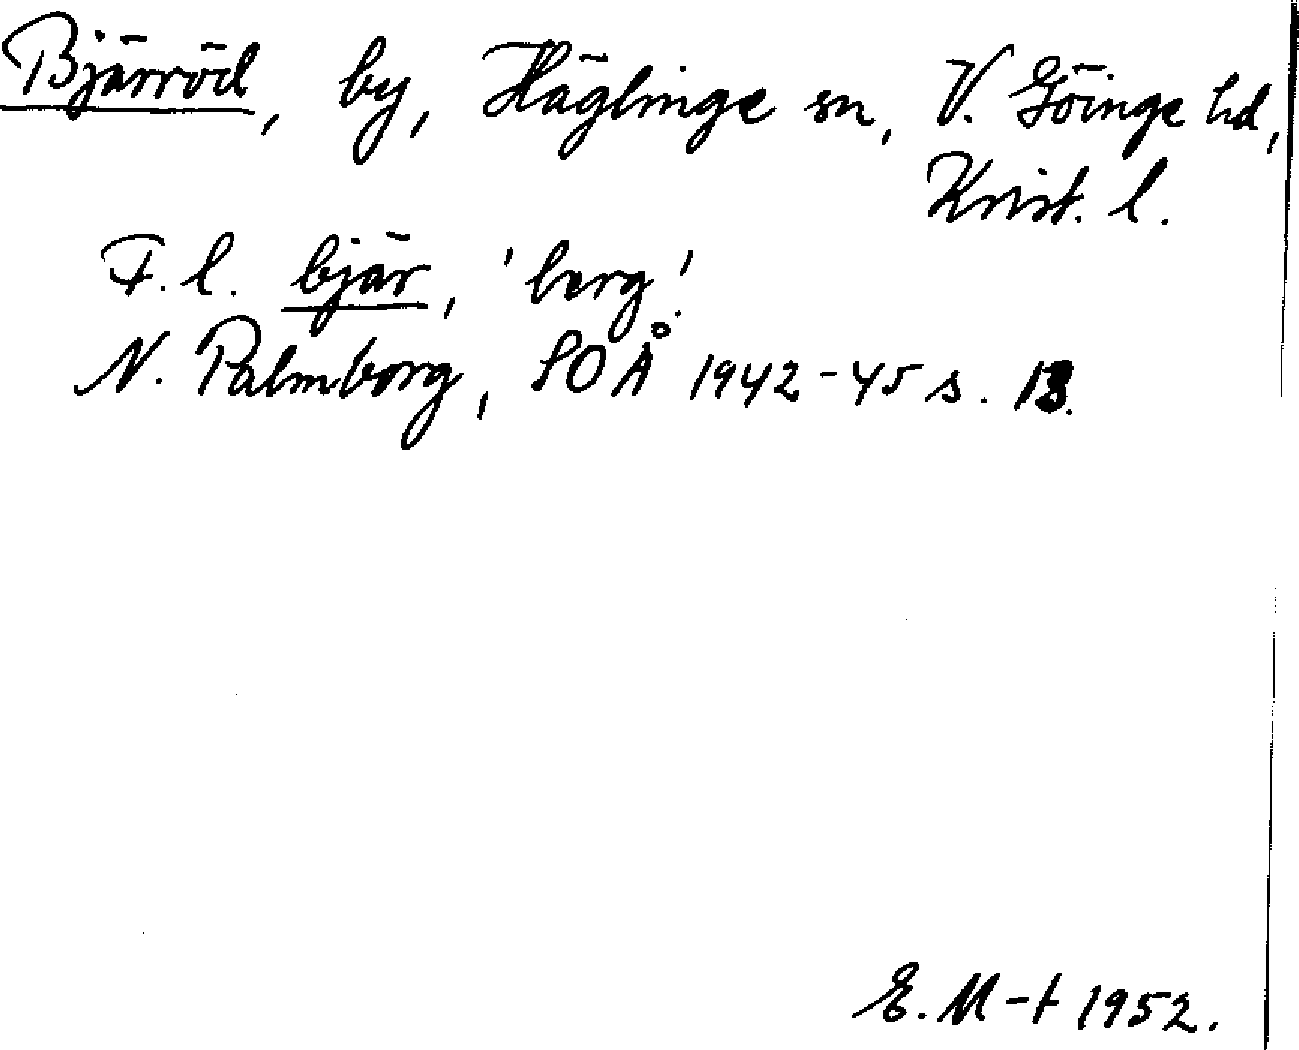 Bjärröd, by, Häglinge sn, V. Göinge hd,
Krist. l.
F. l. bjär, 'berg'.
N. Palmborg, SOÅ 1942-45 s. 13.
E. M-t 1952.